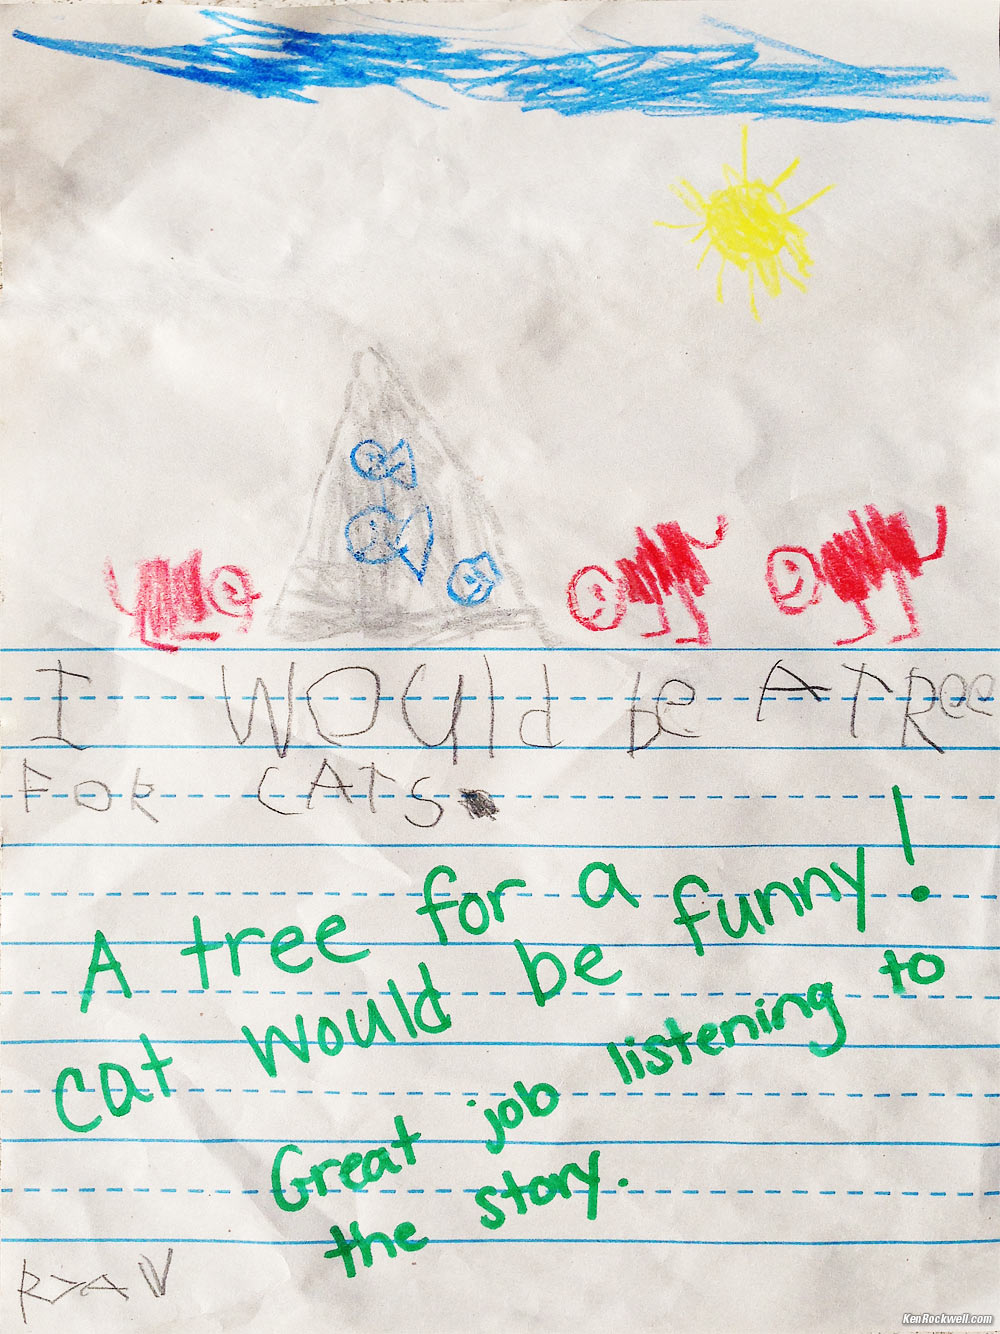 I WOULd be A TRee
FOR CATS.
A tree for a
cat would be funny!
Great job listening to
the story.
RYAN
KenRockwell.com